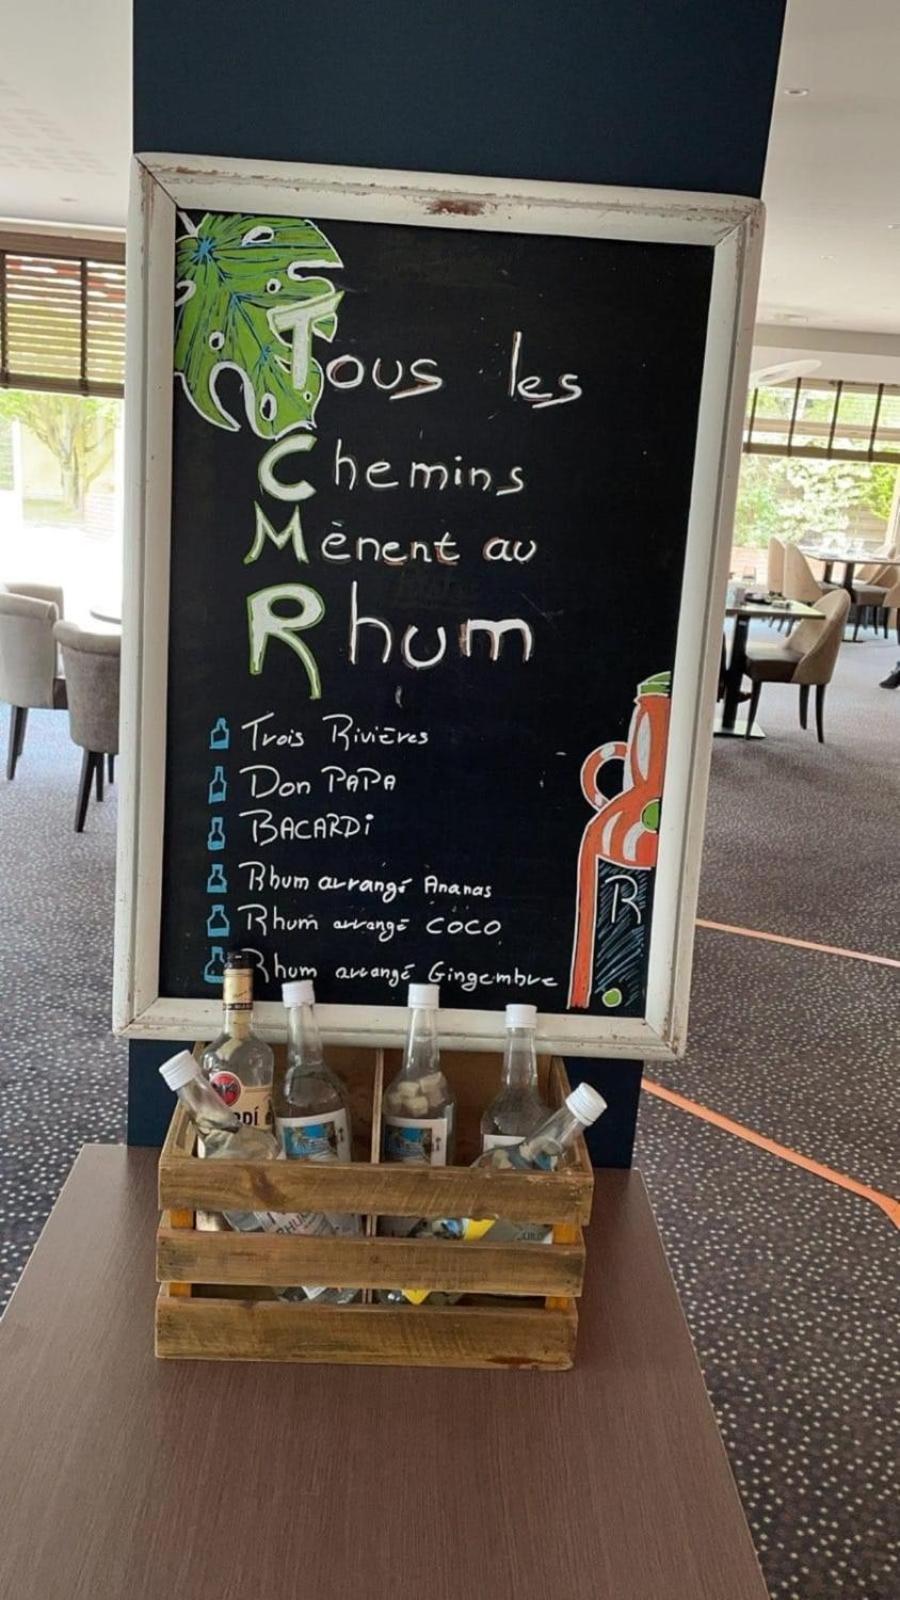 Tous les
Chemins
Mènent au
Rhum
Trois Rivières
Don PAPA
BACARDi
Rhum arrangé Ananas
Rhum arrangé COCO
Rhum arrangé Gingembre
R
RDÍ
RHU